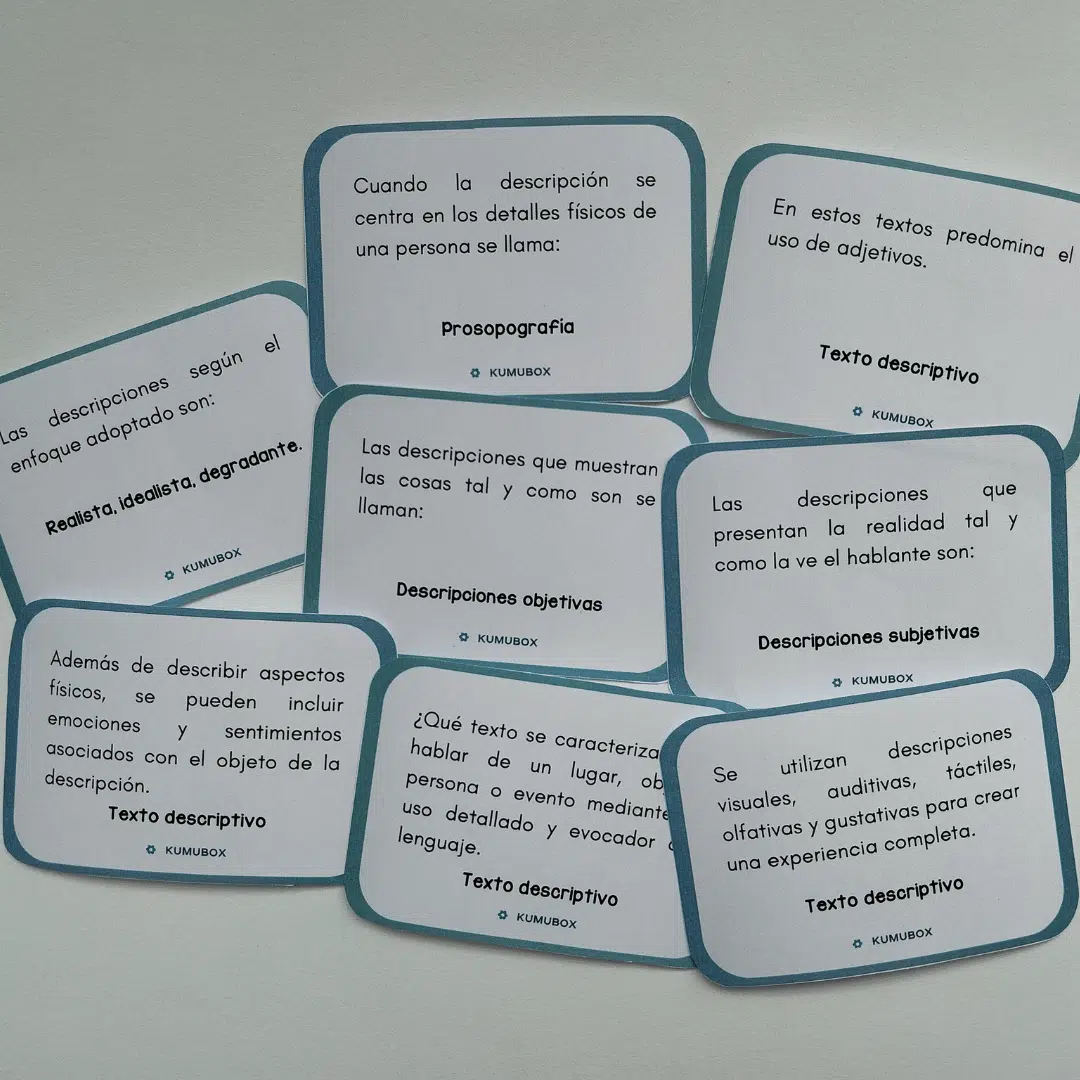 Cuando la descripción se
centra en los detalles físicos de
una persona se llama:
Prosopografia
KUMUBOX
En estos textos predomina el
uso de adjetivos.
Texto descriptivo
KUMUBOX
Las descripciones según el
enfoque adoptado son:
Realista, idealista, degradante.
KUMUBOX
Las descripciones que muestran
las cosas tal y como son se
llaman:
Descripciones objetivas
KUMUBOX
Las descripciones que
presentan la realidad tal y
como la ve el hablante son:
Descripciones subjetivas
KUMUBOX
Además de describir aspectos
físicos, se pueden incluir
emociones y sentimientos
asociados con el objeto de la
descripción.
Texto descriptivo
KUMUBOX
¿Qué texto se caracteriza
hablar de un lugar,
persona o evento mediante
uso detallado y evocador
lenguaje.
Texto descriptivo
KUMUBOX
Se utilizan descripciones
visuales, auditivas, táctiles,
olfativas y gustativas para crear
una experiencia completa.
Texto descriptivo
KUMUBOX